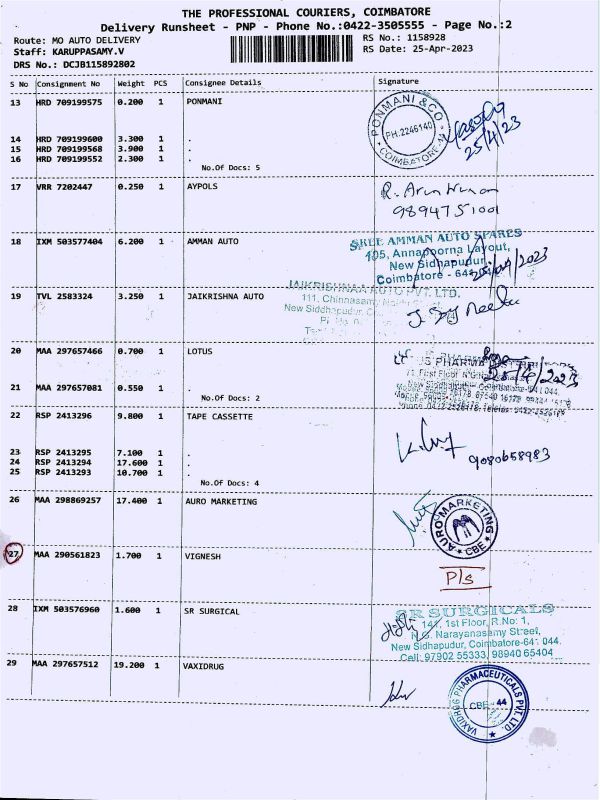 THE PROFESSIONAL COURIERS, COIMBATORE
Delivery Runsheet - PNP - Phone No.:0422-3505555 - Page No.:2
Route: MO AUTO DELIVERY RS No.: 1158928
Staff: KARUPPASAMY.V RS Date: 25-Apr-2023
DRS No.: DCJB115892802
S No Consignment No Weight PCS Consignee Details Signature
13 HRD 709199575 0.200 1 PONMANI
PONMANI & CO.
PH.2246140
COIMBATORE-44
25/4/23
14 HRD 709199600 3.300 1 .
15 HRD 709199568 3.900 1 .
16 HRD 709199552 2.300 1 .
No.Of Docs: 5
17 VRR 7202447 0.250 1 AYPOLS
9894751001
18 IXM 503577404 6.200 1 AMMAN AUTO
SREE AMMAN AUTO SPARES
105, Annapoorna Layout,
New Sidhapudur,
Coimbatore - 641
19 TVL 2583324 3.250 1 JAIKRISHNA AUTO
JAIKRISHNAA AUTO PVT. LTD.
111, Chinnasamy
New Siddhapudur,
20 MAA 297657466 0.700 1 LOTUS
US PHARMA
25/4/2023
21 MAA 297657081 0.550 1 .
No.Of Docs: 2
22 RSP 2413296 9.800 1 TAPE CASSETTE
9080658983
23 RSP 2413295 7.100 1 .
24 RSP 2413294 17.600 1 .
25 RSP 2413293 10.700 1 .
No.Of Docs: 4
26 MAA 298869257 17.400 1 AURO MARKETING
AURO MARKETING
CBE
27 MAA 290561823 1.700 1 VIGNESH
P/s
28 IXM 503576960 1.600 1 SR SURGICAL
SR SURGICALS
141, 1st Floor, R.No: 1,
N.G. Narayanasamy Street,
New Sidhapudur, Coimbatore-641 044.
Cell: 97902 55333, 98940 65404
29 MAA 297657512 19.200 1 VAXIDRUG
VAXIDRUG PHARMACEUTICALS PVT. LTD.
CBE - 44